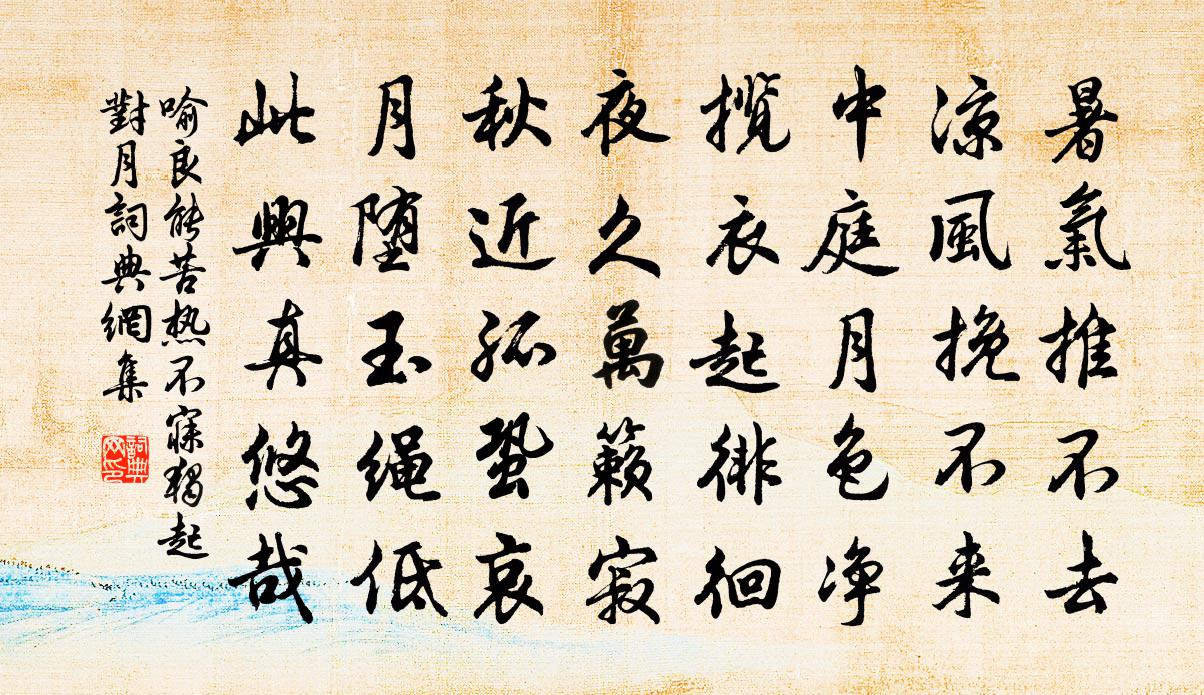 暑氣推不去
凉風挽不来
中庭月色净
攬衣起徘徊
夜久萬籟寂
秋近孤蛩哀
月堕玉绳低
此興真悠哉
喻良能苦热不寐獨起
對月詞典網集
詞典
网印